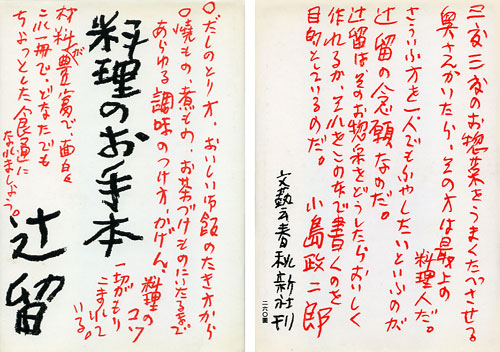 ○だしのとり方、おいしい御飯のたき方から
○焼もの、煮もの、お茶づけものにいたるまで
あらゆる調味のつけ方、かげん、
料理のコツ
一切がもり
こまれて
いる。
料理のお手本
材料が豊富で、面白く
これ一冊で、どなたでも
ちょっとした食通に
なれましょう。
辻留
三度三度のお惣菜をうまくたべさせる
奥さんがいたら、その方は最上の
料理人だ。
さういふ方を一人でもふやしたいといふのが
辻留の念願なのだ。
辻留は、そのお惣菜をどうしたらおいしく
作れるか、それをこの本で書くのを
目的としているのだ。
小島政二郎
文藝春秋新社刊
二六〇圓